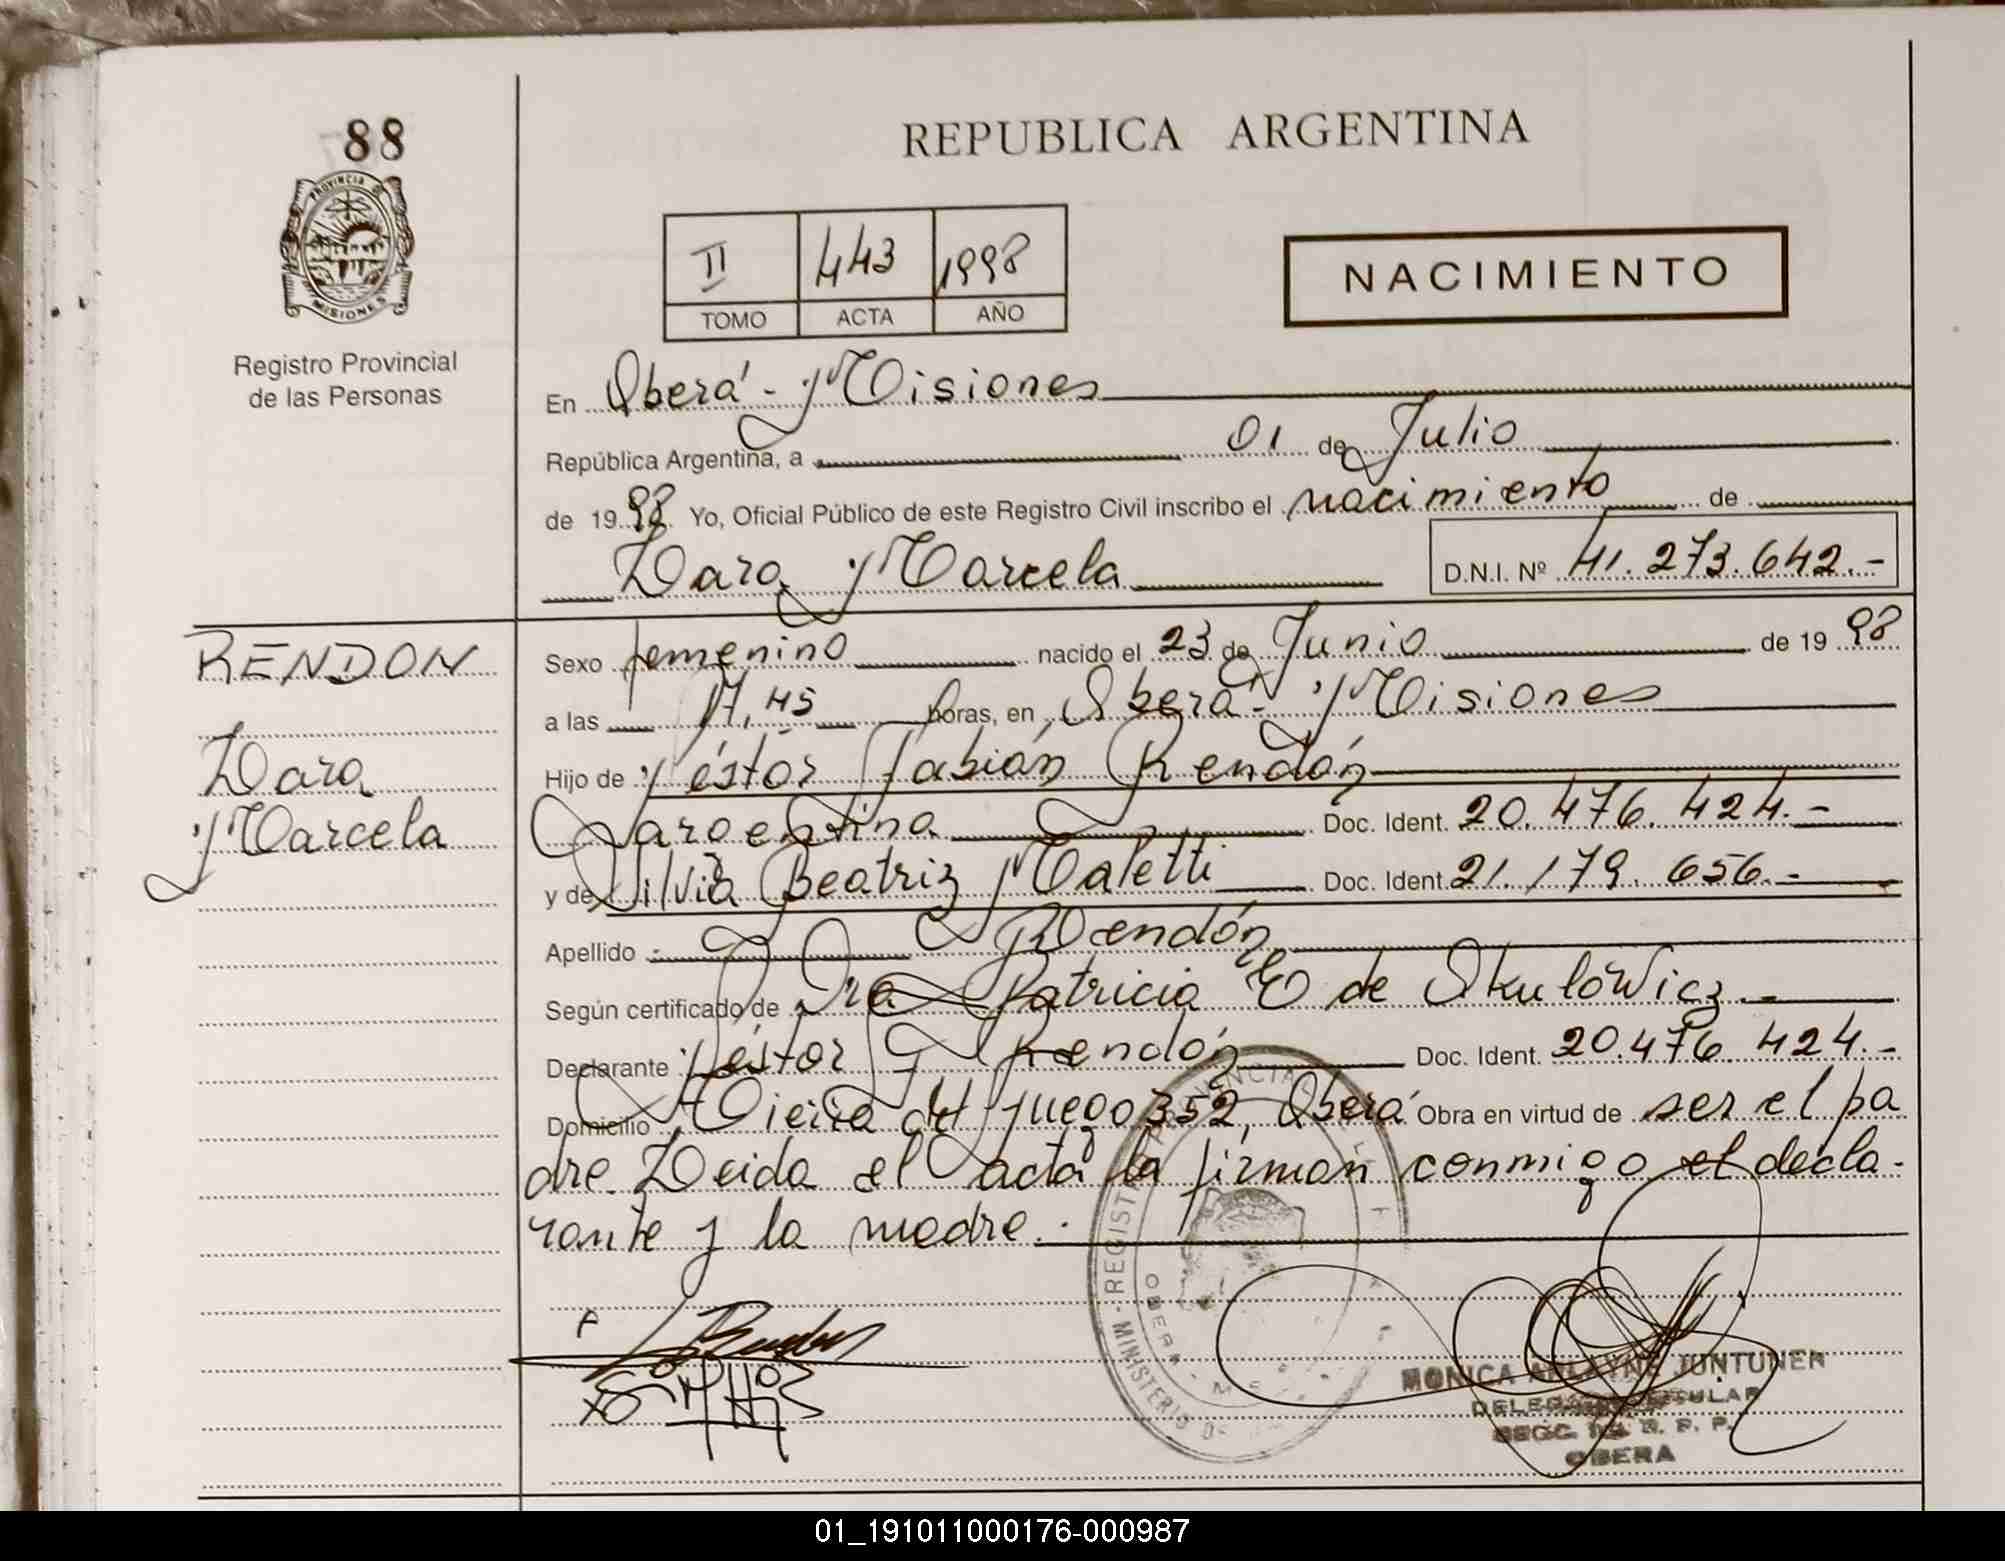 88
PROVINCIA DE
MISIONES
Registro Provincial
de las Personas
REPUBLICA ARGENTINA
II 443 1998
TOMO ACTA AÑO
NACIMIENTO
En Oberá - Misiones
República Argentina, a 01 de Julio
de 1998 Yo, Oficial Público de este Registro Civil inscribo el nacimiento de
Lara Marcela D.N.I. Nº 41.273.642.-
RENDON
Lara
Marcela
Sexo femenino nacido el 23 de Junio de 1998
a las 17,45 horas, en Oberá - Misiones
Hijo de Néstor Fabián Rendón
Argentina Doc. Ident. 20.476.424.-
y de Silvia Beatriz Maletti Doc. Ident. 21.179.656.-
Apellido Rendón
Según certificado de Dra Patricia E de Skulowicz.-
Declarante Néstor F Rendón Doc. Ident. 20.476.424.-
Domicilio Tierra del fuego 352, Oberá Obra en virtud de ser el pa
dre. Leida el acta la firman conmigo el decla-
rante y la madre.
REGISTRO PROVINCIAL
MINISTERIO DE
OBERA
MONICA JUNTUNEN
OBERA
01_191011000176-000987